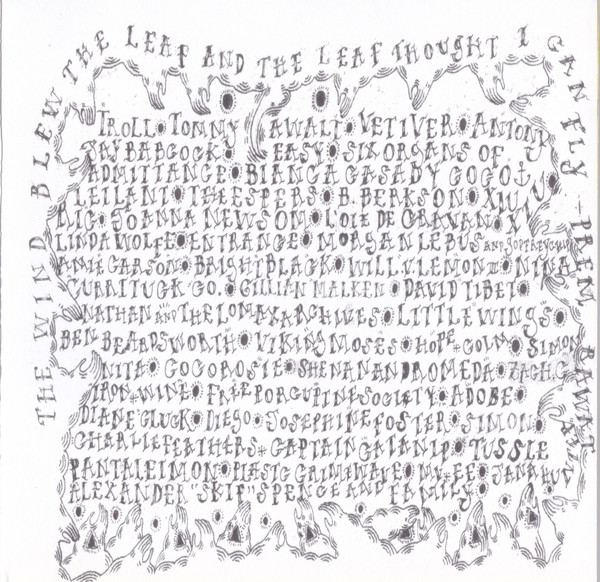 THE WIND BLEW THE LEAF AND THE LEAF THOUGHT I CAN FLY - PREM RAWAT
TROLL • TOMMY AWALT • VETIVER • ANTONY
JAY BABCOCK • EASY • SIX ORGANS OF
ADMITTANCE • BIANCA CASADY COCO
LEILANI • THE ESPERS • B. BERKSON • XIU XIU
RIC • JOANNA NEWSOM • LOIE DE GRAVAN •
LINDA WOLFE • ENTRANCE • MORGAN LEBUS AND
AMIE CARSON • BRIGHTBLACK • WILL.V.LEMON III • NINA
CURRITUCK CO. • GILLIAN MALKEN • DAVID TIBET •
NATHAN AND THE LOMAX ARCHIVES • LITTLE WINGS •
BEN BEARDSWORTH • VIKING MOSES • HOPE + COLM • SIMON
NITA • COCOROSIE • SHENANANDROMEDA • ZACH.C
IRON + WINE • FREE PORCUPINE SOCIETY • ADOBE •
DIANE CLUCK • DIEGO • JOSEPHINE FOSTER • SIMON •
CHARLIE FEATHERS + CAPTAIN CATANIP • TUSSLE
PANTALEIMON • PLASTC CRIMEWAVE • MV + EE • JANA HUNTER
ALEXANDER "SKIP" SPENCE AND FAMILY •